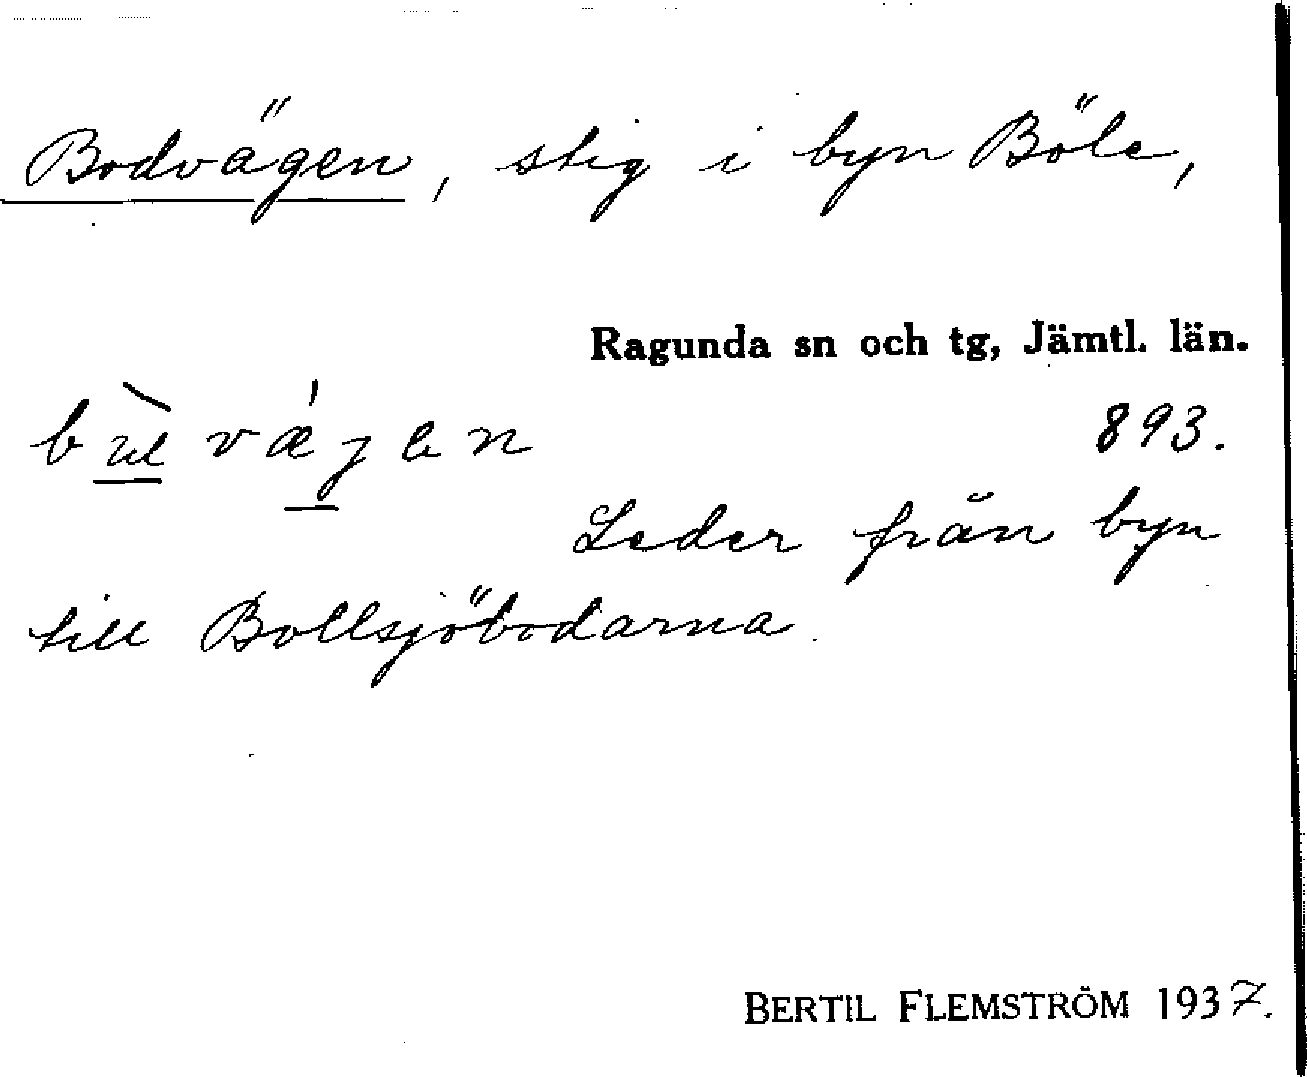 Bodvägen, stig i byn Böle,
Ragunda sn och tg, Jämtl. län.
893.
Leder från byn
till Bollsjöbodarna.
BERTIL FLEMSTRÖM 1937.